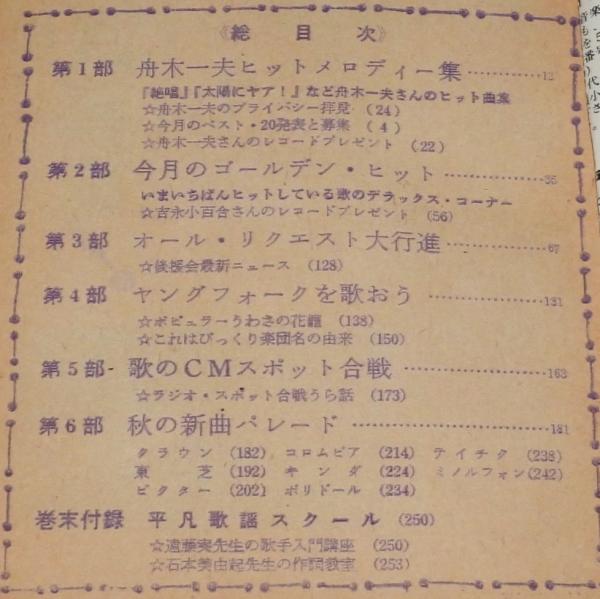 《総目次》
第1部 舟木一夫ヒットメロディー集…………12
『絶唱』『太陽にヤア!』など舟木一夫さんのヒット曲集
☆舟木一夫のプライバシー拝見 (24)
☆今月のベスト・20発表と募集 (4)
☆舟木一夫さんのレコードプレゼント (22)
第2部 今月のゴールデン・ヒット…………35
いまいちばんヒットしている歌のデラックス・コーナー
☆吉永小百合さんのレコードプレゼント (56)
第3部 オール・リクエスト大行進…………67
☆後援会最新ニュース (128)
第4部 ヤングフォークを歌おう…………131
☆ポピュラーうわさの花籠 (138)
☆これはびっくり楽団名の由来 (150)
第5部 歌のCMスポット合戦…………163
☆ラジオ・スポット合戦うら話 (173)
第6部 秋の新曲パレード…………181
クラウン (182) コロムビア (214) テイチク (238)
東芝 (192) キング (224) ミノルフォン(242)
ビクター (202) ポリドール (234)
巻末付録 平凡歌謡スクール (250)
☆遠藤実先生の歌手入門講座 (250)
☆石本美由起先生の作詞教室 (253)